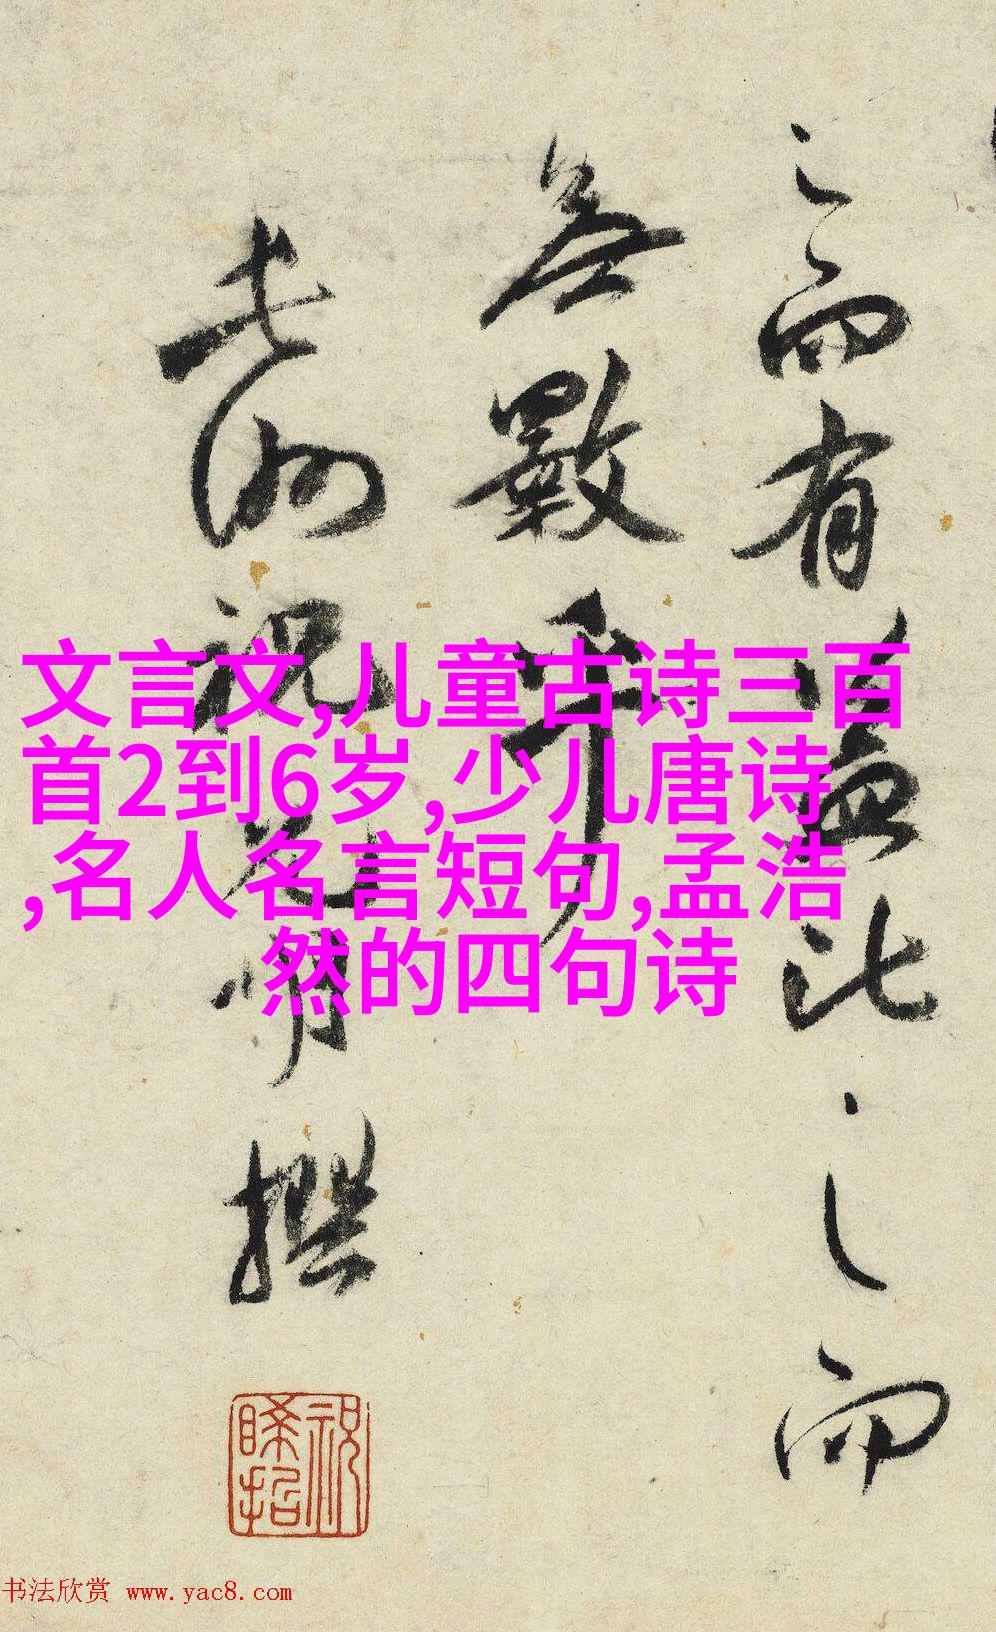 之而有益此之而
無數乎
長洲祝允明撰
文言文,儿童古诗三百
首2到6岁,少儿唐诗
,名人名言短句,孟浩
然的四句诗
书法欣赏 www.yac8.com